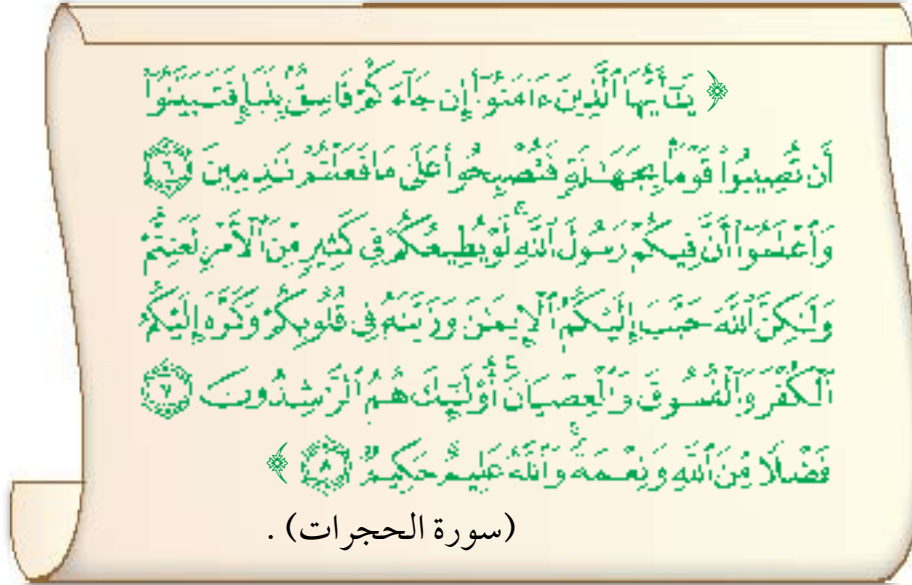 ﴿ يَٰٓأَيُّهَا ٱلَّذِينَ ءَامَنُوٓا۟ إِن جَآءَكُمْ فَاسِقٌۢ بِنَبَإٍ فَتَبَيَّنُوٓا۟
أَن تُصِيبُوا۟ قَوْمًۢا بِجَهَٰلَةٍ فَتُصْبِحُوا۟ عَلَىٰ مَا فَعَلْتُمْ نَٰدِمِينَ ٦
وَٱعْلَمُوٓا۟ أَنَّ فِيكُمْ رَسُولَ ٱللَّهِ ۚ لَوْ يُطِيعُكُمْ فِى كَثِيرٍ مِّنَ ٱلْأَمْرِ لَعَنِتُّمْ
وَلَٰكِنَّ ٱللَّهَ حَبَّبَ إِلَيْكُمُ ٱلْإِيمَٰنَ وَزَيَّنَهُۥ فِى قُلُوبِكُمْ وَكَرَّهَ إِلَيْكُمُ
ٱلْكُفْرَ وَٱلْفُسُوقَ وَٱلْعِصْيَانَ ۚ أُو۟لَٰٓئِكَ هُمُ ٱلرَّٰشِدُونَ ٧
فَضْلًا مِّنَ ٱللَّهِ وَنِعْمَةً ۚ وَٱللَّهُ عَلِيمٌ حَكِيمٌ ٨ ﴾
(سورة الحجرات) .